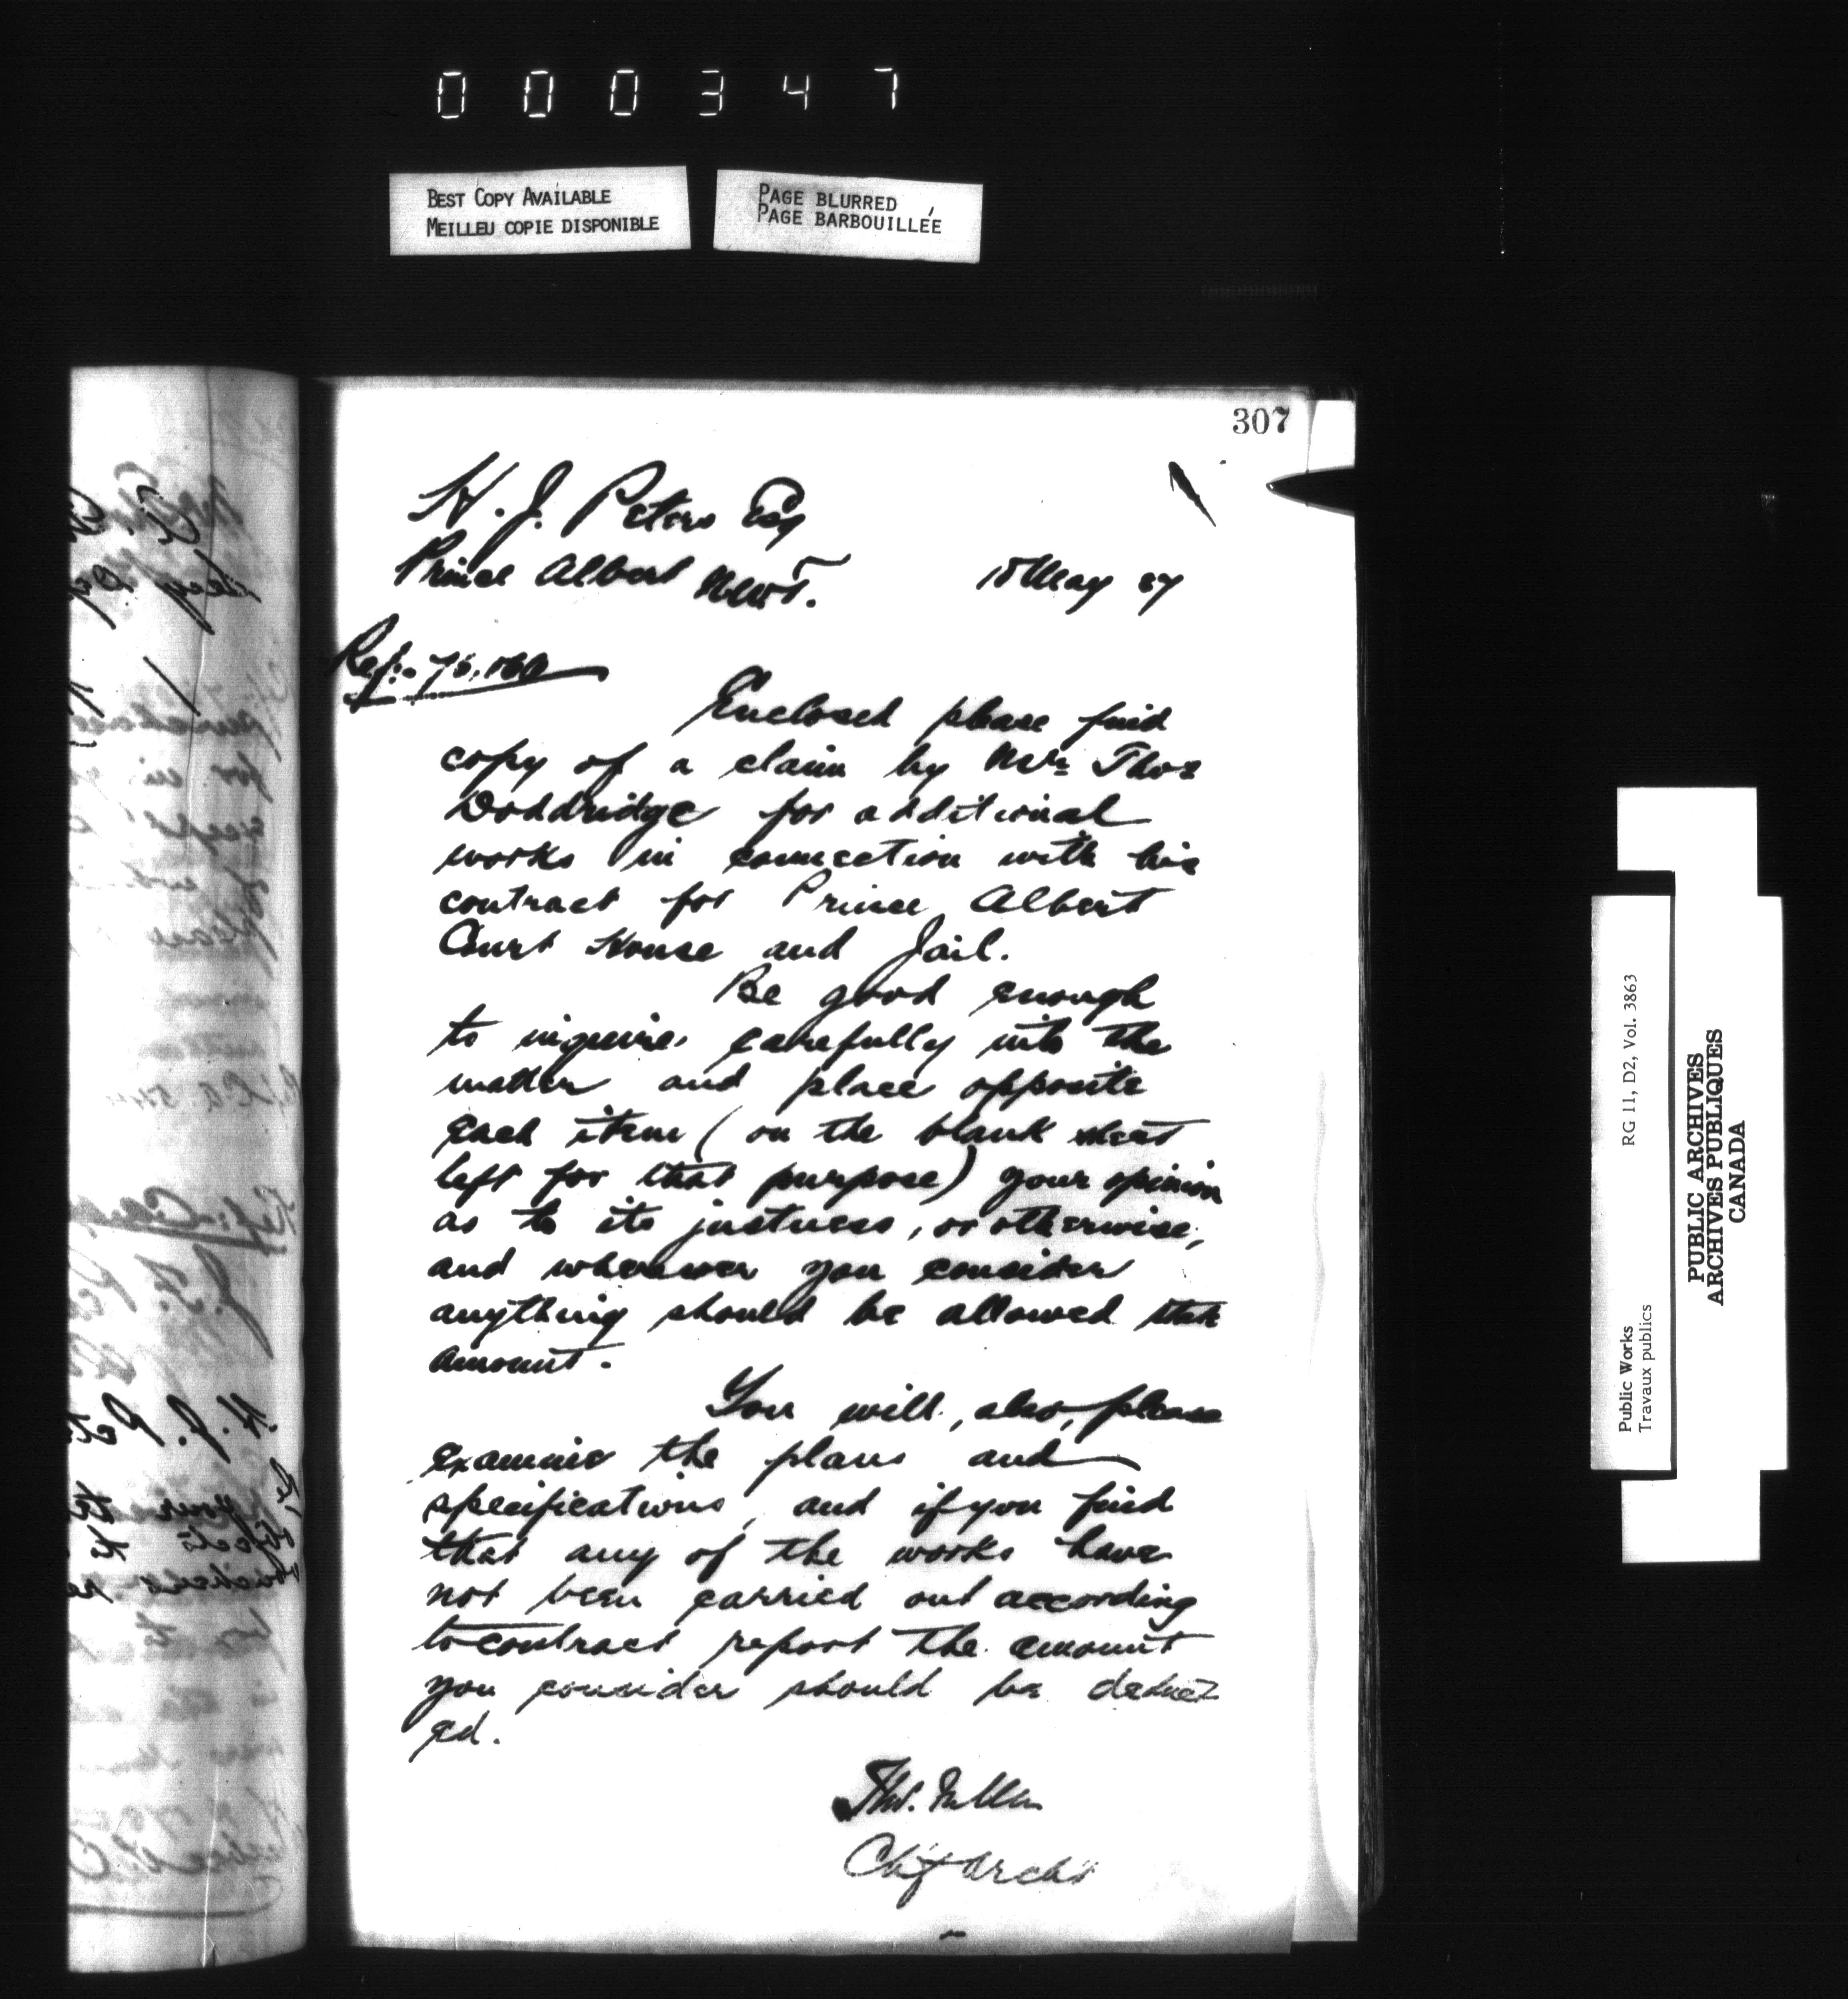 000347
BEST COPY AVAILABLE
MEILLEU COPIE DISPONIBLE
PAGE BLURRED
PAGE BARBOUILLÉE
307
H. J. Peters Esq
Prince Albert N.W.T.
May 87
Ref:-
Enclosed please find
copy of a claim by Mr. Thos
Doddridge for additional
works in connection with his
contract for Prince Albert
Court House and Jail.
Be good enough
to inquire carefully into the
matter and place opposite
each item (on the blank sheet
left for that purpose) your opinion
as to its justness, or otherwise,
and wherever you consider
anything should be allowed that
amount.
You will, also, please
examine the plans and
specifications, and if you find
that any of the works have
not been carried out according
to contract report the amount
you consider should be deduct
ed.
Thos. Fuller
Chf Archt
Public Works
Travaux publics
RG 11, D2, Vol. 3863
PUBLIC ARCHIVES
ARCHIVES PUBLIQUES
CANADA